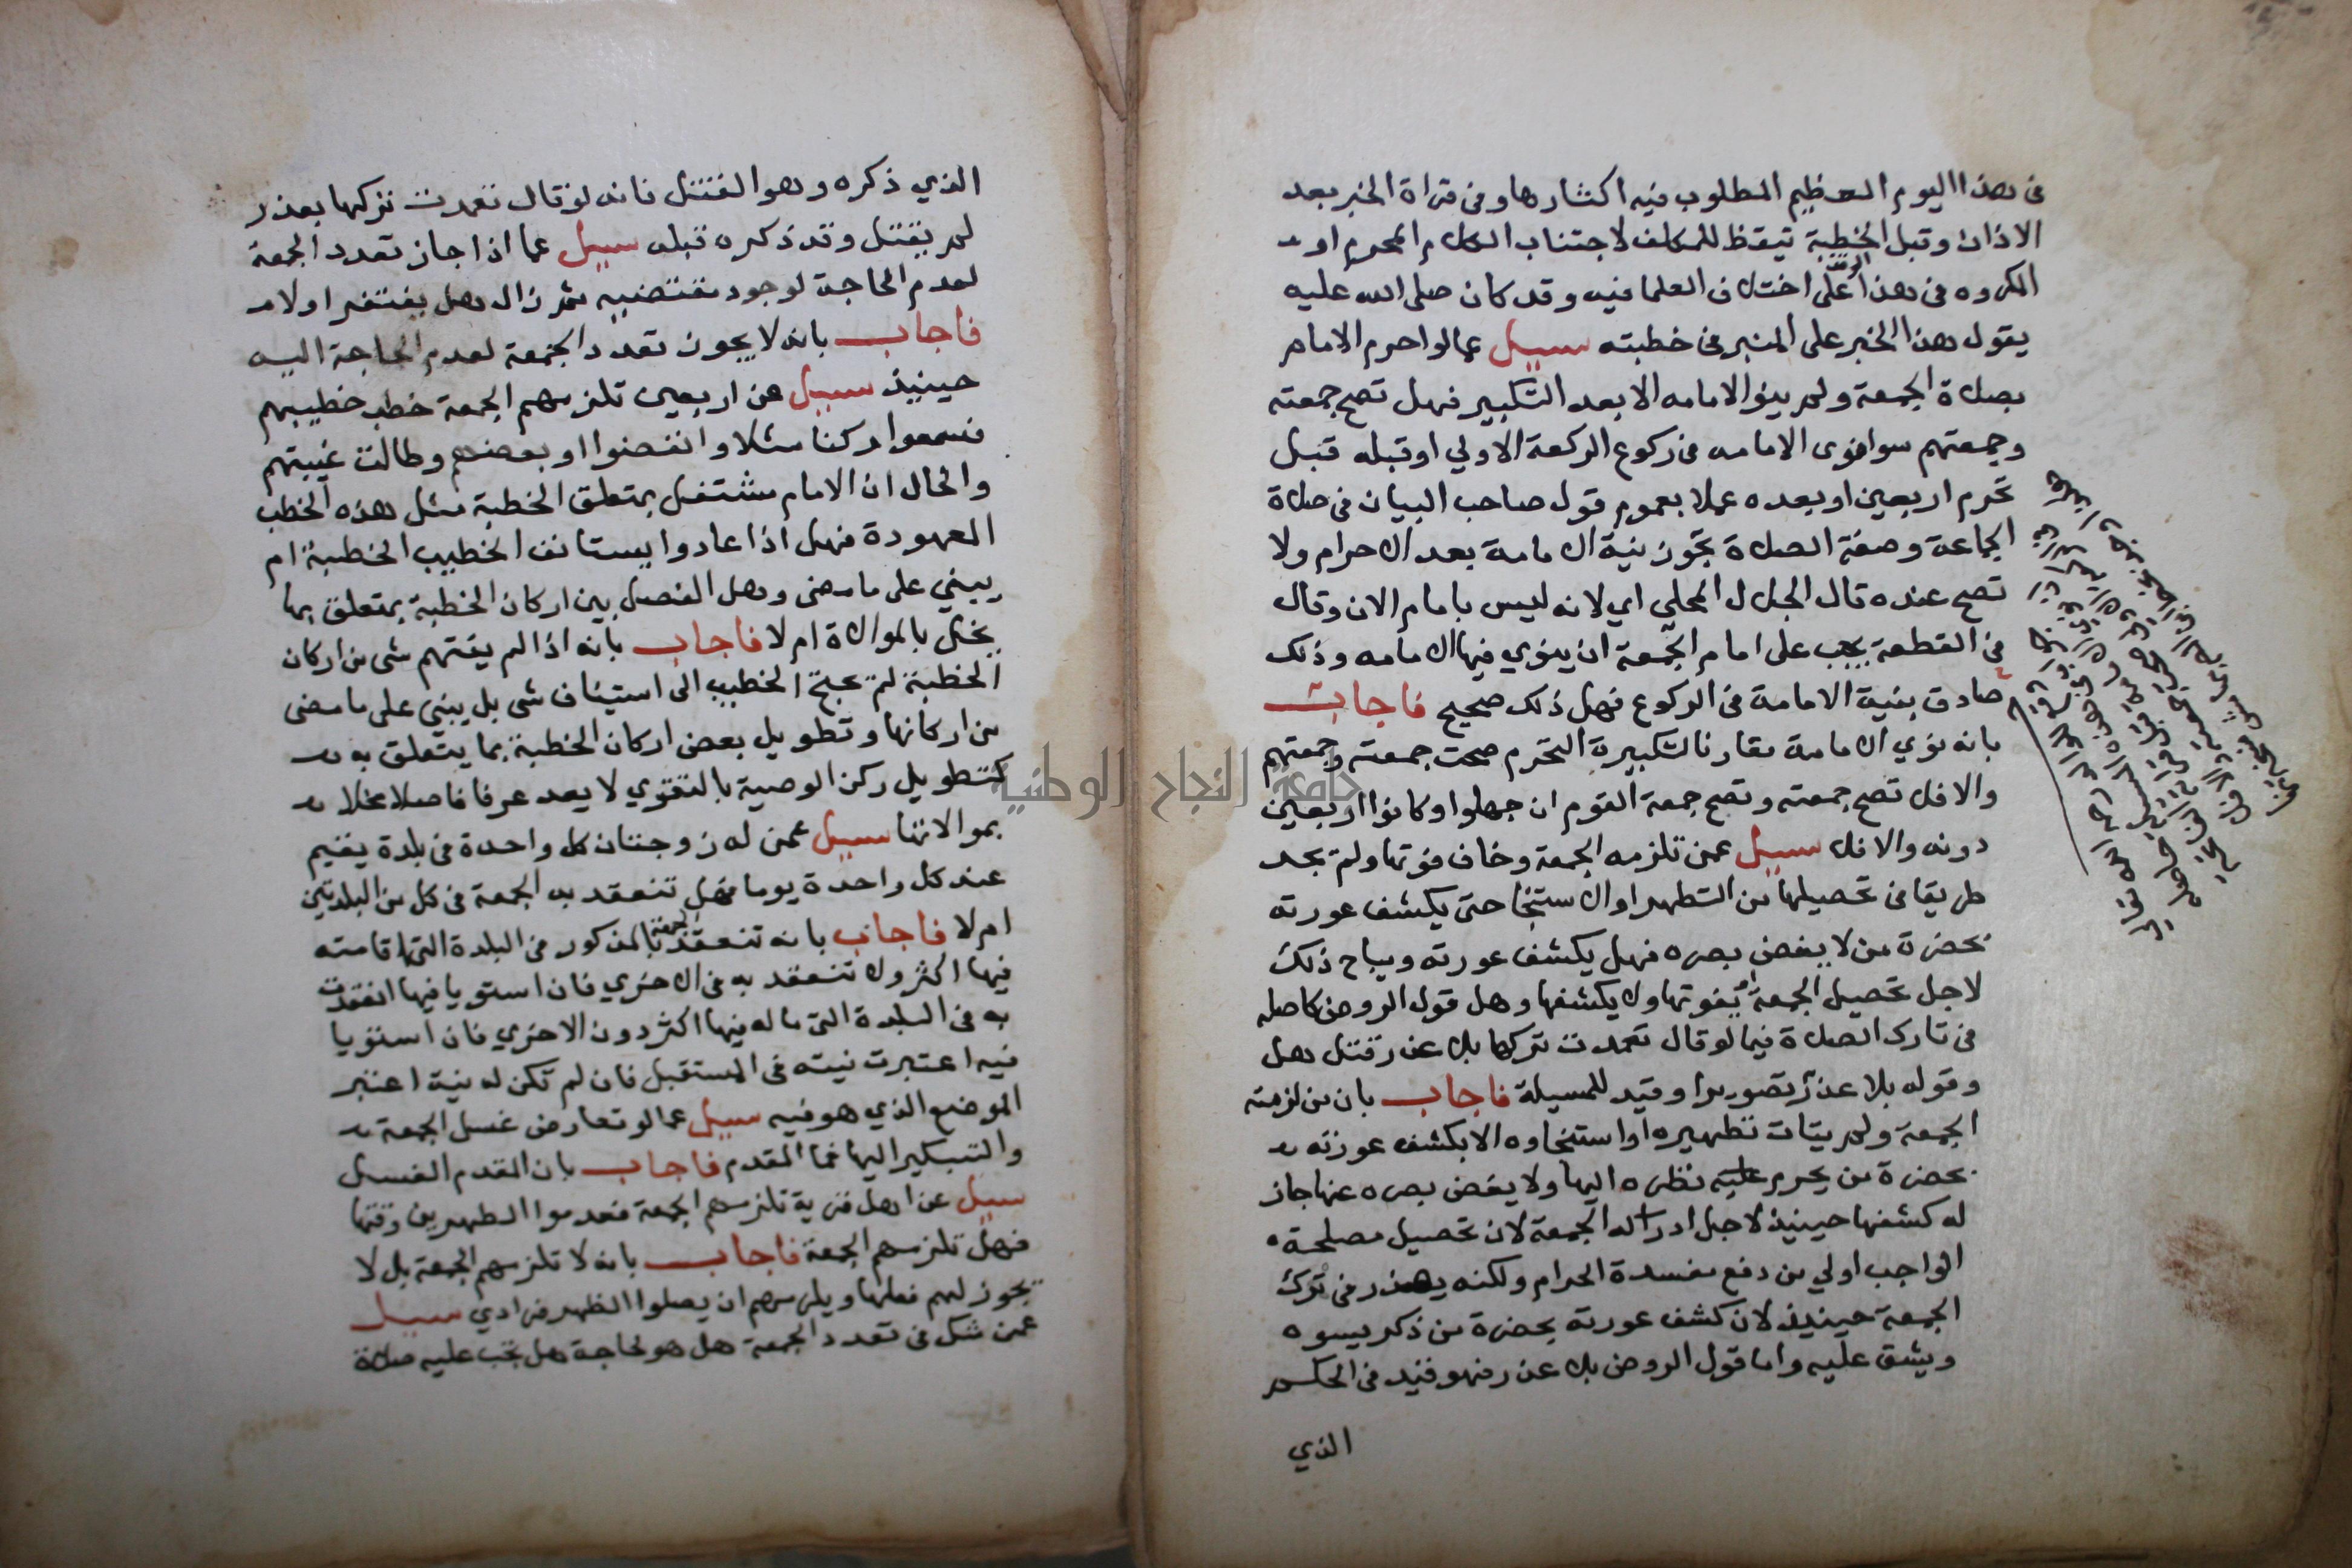 في هذا اليوم العظيم المطلوب فيه اكثارها وفي قراة الخبر بعد
الاذان وقبل الخطبة تيقظ للمكلف لاجتناب الكلام المحرم او
المكروه في هذا الوقت على اختلاف العلما فيه وقد كان صلى الله عليه
يقول هذا الخبر على المنبر في خطبته سييل عما لو احرم الامام
بصلاة الجمعة ولم ينو الامامه الا بعد التكبير فهل تصح جمعته
وجمعتهم سوا نوى الامامه في ركوع الركعة الاولي او قبله قبل
تحرم اربعين او بعده عملا بعموم قول صاحب البيان في صلاة
الجماعة وصفة الصلاة تجوز نية الامامة بعد الاحرام ولا
تصح عنده قال الجلال المحلي اي لانه ليس بامام الان وقال
في القطعة يجب على امام الجمعة ان ينوي فيها الامامه وذلك
صادق بنية الامامة في الركوع فهل ذلك صحيح فاجاب
بانه نوي الامامة مقارنا لتكبيرة التحرم صحت جمعته وجمعتهم
والا فلا تصح جمعته وتصح جمعة القوم ان جهلوا وكانوا اربعين
دونه والا فلا سييل عمن تلزمه الجمعة وخاف فوتها ولم يجد
طريقا في تحصيلها من التطهر او الاستنجا حتى يكشف عورته
بحضرة من لا يغض بصره فهل يكشف عورته ويباح ذلك
لاجل تحصيل الجمعة ام يفوتها ولا يكشفها وهل قول الروض كاصله
في تارك الصلاة فيما لو قال تعمدت تركها بلا عذر قتل هل
وقوله بلا عذر تصوير او قيد للمسيلة فاجاب بان من لزمته
الجمعة ولم يتات تطهيره او استنجاوه الا بكشف عورته
بحضرة من يحرم عليه نظره اليها ولا يغض بصره عنها جاز
له كشفها حينيذ لاجل ادراك الجمعة لان تحصيل مصلحة
الواجب اولي من دفع مفسدة الحرام ولكنه يعذر في ترك
الجمعة حينيذ لان كشف عورته بحضرة من ذكر يسوه
ويشق عليه واما قول الروض بلا عذر فهو قيد في الحكم
الذي
الذي ذكره وهو القتل فانه لو قال تعمدت تركها بعذر
لم يقتل وقد ذكره قبله سييل عما اذا جاز تعدد الجمعة
لعدم الحاجة لوجود مقتضيه ثم زال هل يفتقر اولا
فاجاب بانه لا يجوز تعدد الجمعة لعدم الحاجة اليه
حينيذ سييل عن اربعين تلزمهم الجمعة خطب خطيبهم
فسمعوا ركنا مثلا وانفضوا او بعضهم وطالت غيبتهم
والحال ان الامام مشتغل بمتعلق الخطبة مثل هذه الخطب
المعهودة فهل اذا عادوا يستانف الخطيب الخطبة ام
يبني على ما مضى وهل الفصل بين اركان الخطبة بمتعلق بها
يخل بالموالاة ام لا فاجاب بانه اذا لم يفتهم شي من اركان
الخطبة لم يحتج الخطيب الى استيناف شي بل يبني على ما مضى
من اركانها وتطويل بعض اركان الخطبة بما يتعلق به
كتطويل ركن الوصية بالتقوي لا يعد عرفا فاصلا مخلا
بموالاتها سييل عمن له زوجتان كل واحدة في بلدة يقيم
عند كل واحدة يوما فهل تنعقد به الجمعة في كل من البلدتين
ام لا فاجاب بانه تنعقد الجمعة بالمذكور في البلدة التي اقامته
فيها اكثر ولا تنعقد به في الاخري فان استويا فيها انعقدت
به في البلدة التي ماله فيها اكثر دون الاخري فان استويا
فيه اعتبرت نيته في المستقبل فان لم تكن له نية اعتبر
الموضع الذي هو فيه سييل عما لو تعارض غسل الجمعة
والتبكير اليها فما المقدم فاجاب بان المقدم الغسل
سييل عن اهل قرية تلزمهم الجمعة فعدموا الطهورين وقتها
فهل تلزمهم الجمعة فاجاب بانه لا تلزمهم الجمعة بل لا
تجوز لهم فعلها ويلزمهم ان يصلوا الظهر فرادي سييل
عمن شك في تعدد الجمعة هل هو لحاجة هل تجب عليه صلاة
جامعة النجاح الوطنية